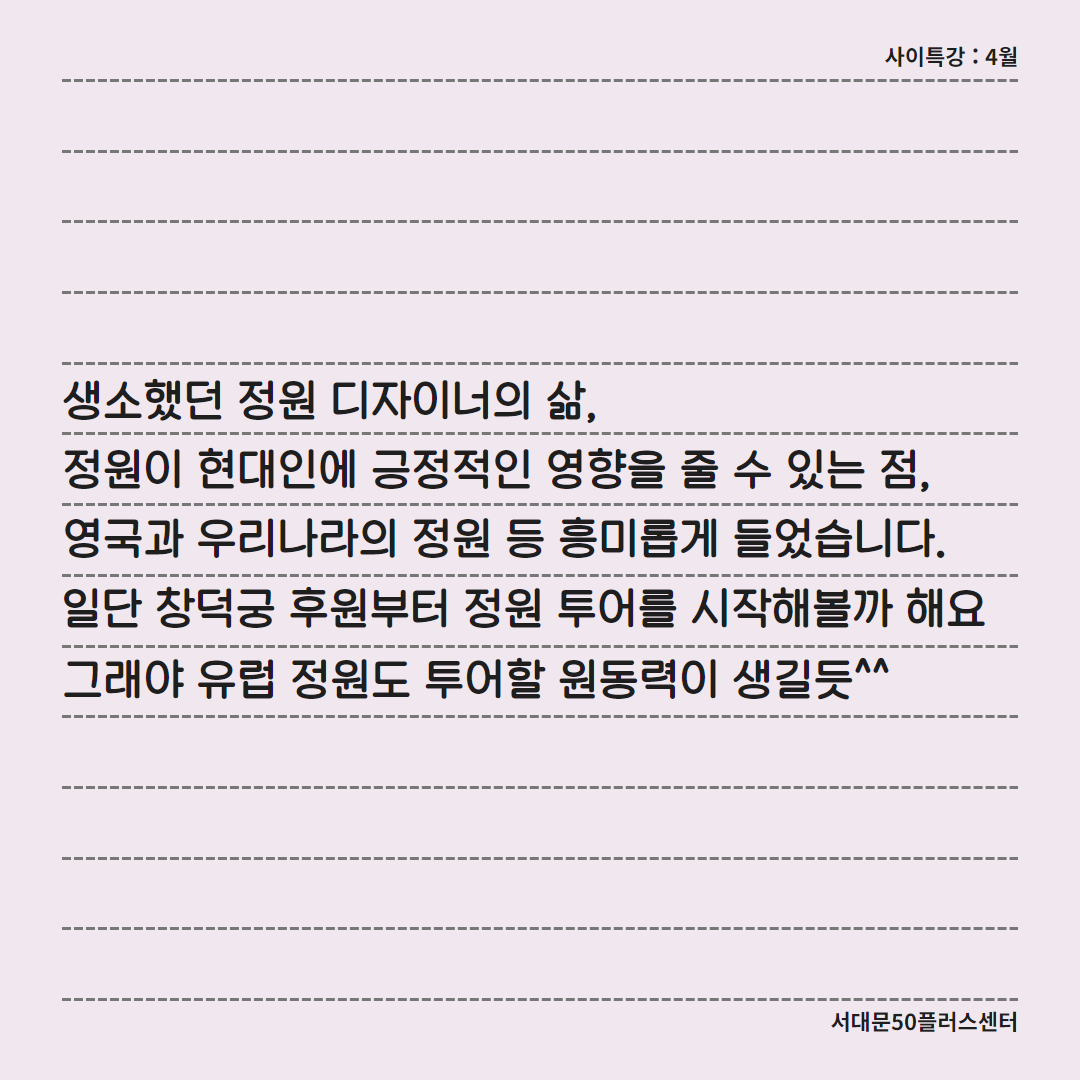 사이특강 : 4월
생소했던 정원 디자이너의 삶,
정원이 현대인에 긍정적인 영향을 줄 수 있는 점,
영국과 우리나라의 정원 등 흥미롭게 들었습니다.
일단 창덕궁 후원부터 정원 투어를 시작해볼까 해요
그래야 유럽 정원도 투어할 원동력이 생길듯^^
서대문50플러스센터